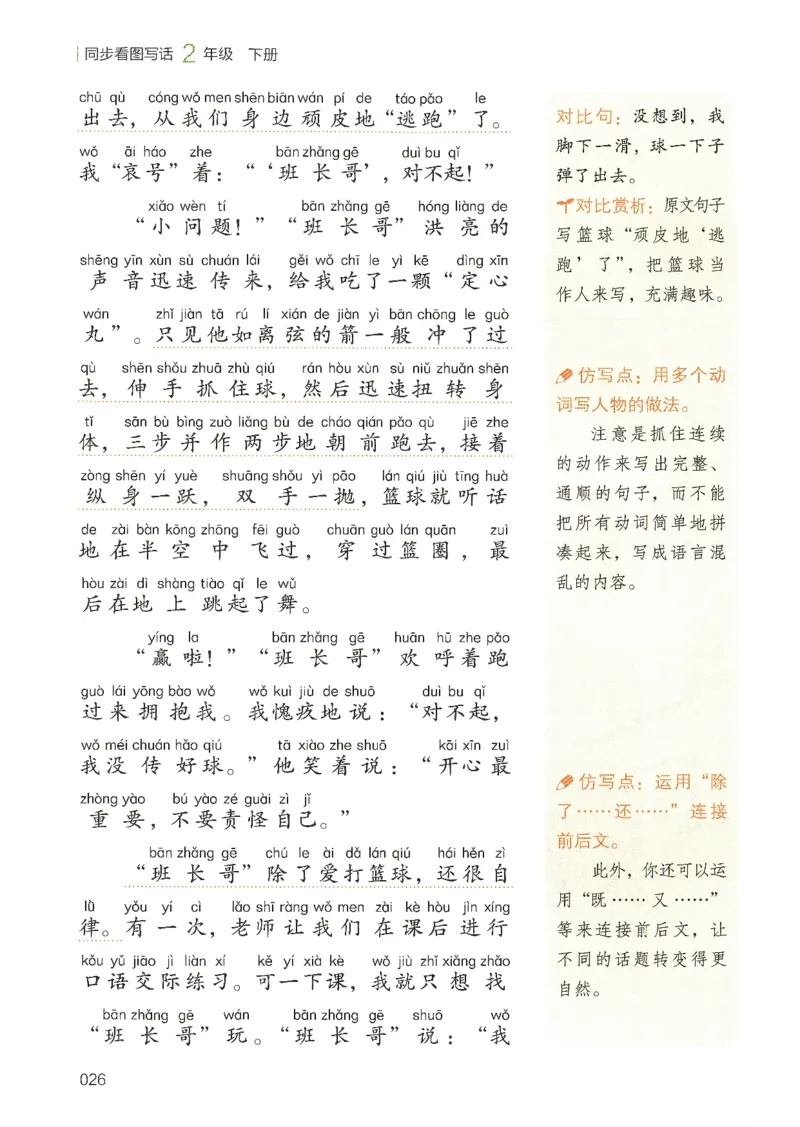 同步看图写话 2 年级 下册
chū qù cóng wǒ men shēn biān wán pí de táo pǎo le
出去，从我们身边顽皮地“逃跑”了。
wǒ āi háo zhe bān zhǎng gē duì bu qǐ
我“哀号”着：“‘班长哥’，对不起！”
xiǎo wèn tí bān zhǎng gē hóng liàng de
“小问题！”“班长哥”洪亮的
shēng yīn xùn sù chuán lái gěi wǒ chī le yì kē dìng xīn
声音迅速传来，给我吃了一颗“定心
wán zhǐ jiàn tā rú lí xián de jiàn yì bān chōng le guò
丸”。只见他如离弦的箭一般冲了过
qù shēn shǒu zhuā zhù qiú rán hòu xùn sù niǔ zhuǎn shēn
去，伸手抓住球，然后迅速扭转身
tǐ sān bù bìng zuò liǎng bù de cháo qián pǎo qù jiē zhe
体，三步并作两步地朝前跑去，接着
zòng shēn yí yuè shuāng shǒu yì pāo lán qiú jiù tīng huà
纵身一跃，双手一抛，篮球就听话
de zài bàn kōng zhōng fēi guò chuān guò lán quān zuì
地在半空中飞过，穿过篮圈，最
hòu zài dì shàng tiào qǐ le wǔ
后在地上跳起了舞。
yíng la bān zhǎng gē huān hū zhe pǎo
“赢啦！”“班长哥”欢呼着跑
guò lái yōng bào wǒ wǒ kuì jiù de shuō duì bu qǐ
过来拥抱我。我愧疚地说：“对不起，
wǒ méi chuán hǎo qiú tā xiào zhe shuō kāi xīn zuì
我没传好球。”他笑着说：“开心最
zhòng yào bú yào zé guài zì jǐ
重要，不要责怪自己。”
bān zhǎng gē chú le ài dǎ lán qiú hái hěn zì
“班长哥”除了爱打篮球，还很自
lǜ yǒu yí cì lǎo shī ràng wǒ men zài kè hòu jìn xíng
律。有一次，老师让我们在课后进行
kǒu yǔ jiāo jì liàn xí kě yí xià kè wǒ jiù zhǐ xiǎng zhǎo
口语交际练习。可一下课，我就只想找
bān zhǎng gē wán bān zhǎng gē shuō wǒ
“班长哥”玩。“班长哥”说：“我
对比句：没想到，我
脚下一滑，球一下子
弹了出去。
对比赏析：原文句子
写篮球“顽皮地‘逃
跑’了”，把篮球当
作人来写，充满趣味。
仿写点：用多个动
词写人物的做法。
注意是抓住连续
的动作来写出完整、
通顺的句子，而不能
把所有动词简单地拼
凑起来，写成语言混
乱的内容。
仿写点：运用“除
了……还……”连接
前后文。
此外，你还可以运
用“既……又……”
等来连接前后文，让
不同的话题转变得更
自然。
026